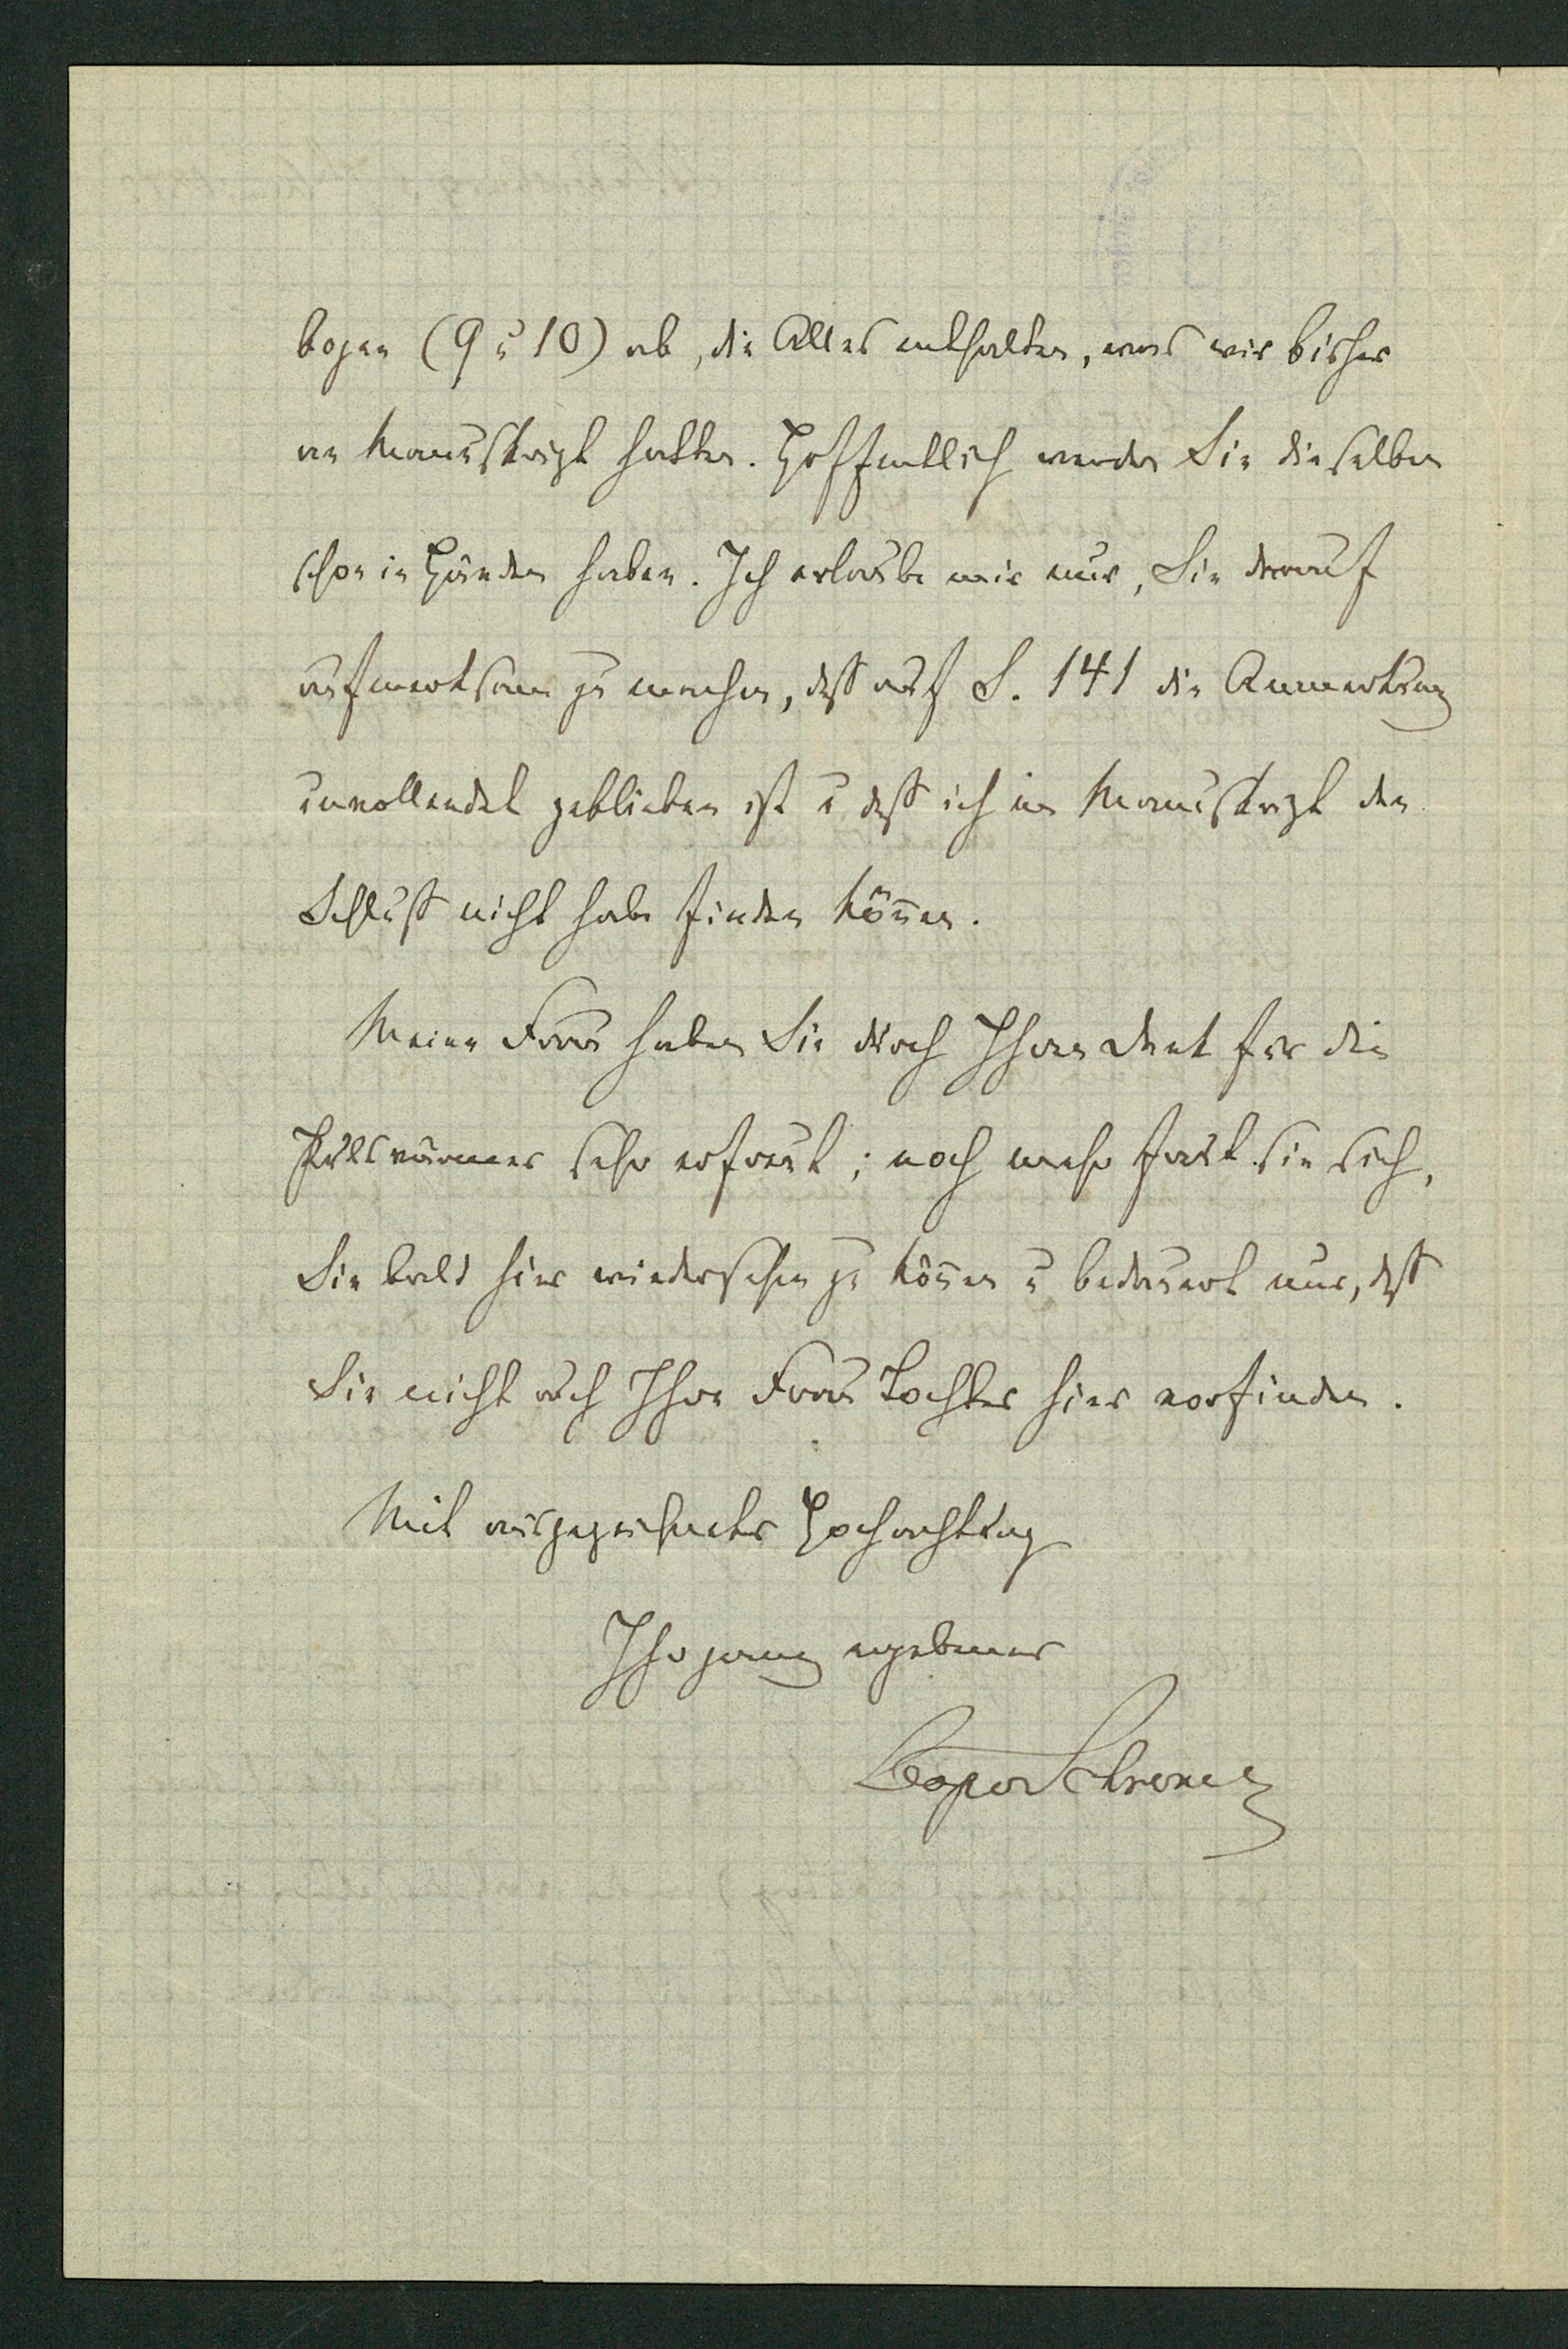 bogen (9 u 10) ab, die Alles enthalten, was wir bisher
an Manuskript hatten. Hoffentlich werden Sie dieselben
schon in Händen haben. Ich erlaube mir nur, Sie darauf
aufmerksam zu machen, daß auf S. 141 die Anmerkung
unvollendet geblieben ist u daß ich im Manuskript den
Schluß nicht habe finden können.
Meine Frau haben Sie durch Ihren Dank für die
Pulswärmer sehr erfreut; noch mehr freut sie sich,
Sie bald hier wiedersehen zu können u bedauert nur, daß
Sie nicht auch Ihre Frau Tochter hier vorfinden.
Mit ausgezeichneter Hochachtung
Ihr ganz ergebener
Leopold Schrenck